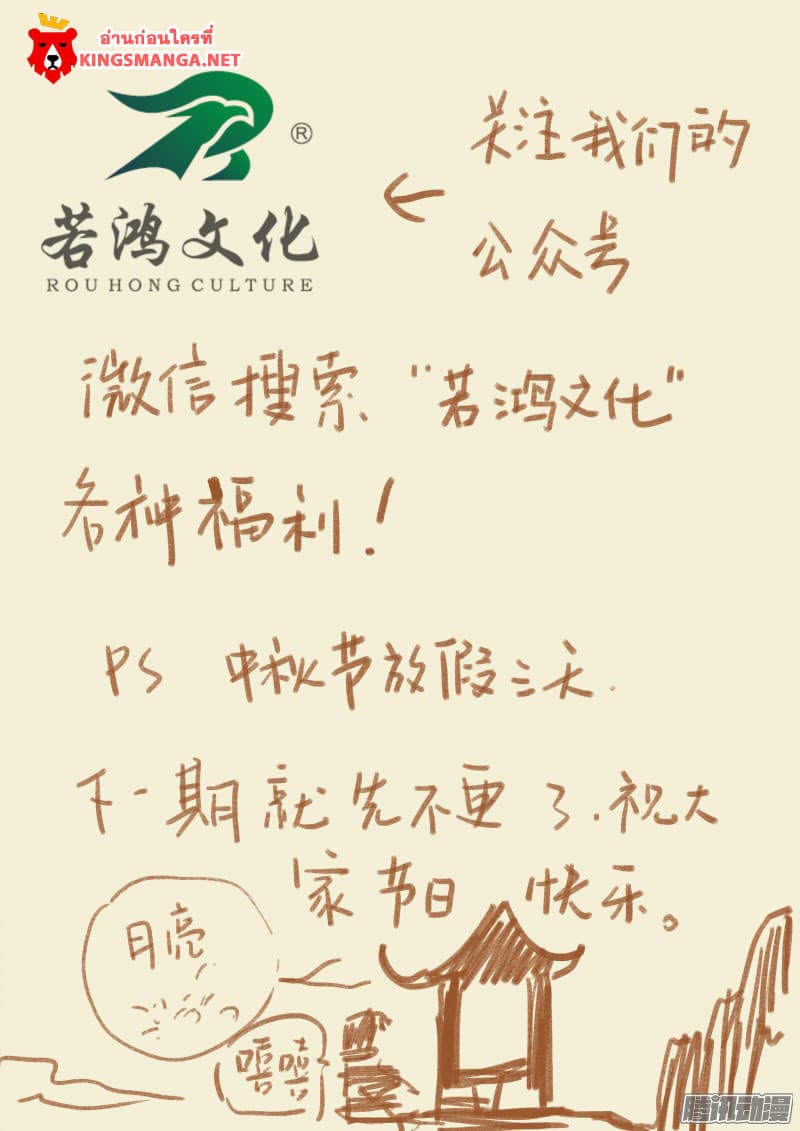 อ่านก่อนใครที่
KINGSMANGA.NET
®
若鸿文化
ROU HONG CULTURE
关注我们的
公众号
微信搜索“若鸿文化”
各种福利！
PS 中秋节放假三天.
下一期就先不更了.祝大
家节日快乐。
月亮
嘻嘻
腾讯动漫